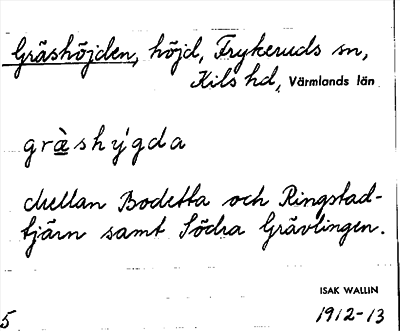 Gräshöjden, höjd, Frykeruds sn,
Kils hd, Värmlands län
gràshýgda
Mellan Bodetta och Ringstad-
tjärn samt Södra Grävlingen.
ISAK WALLIN
5 1912-13